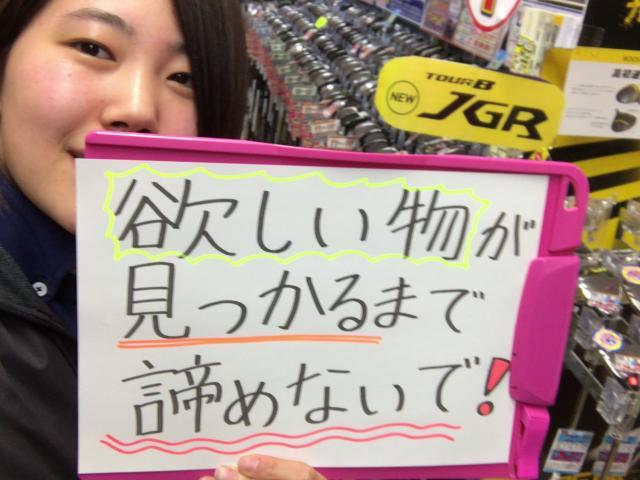 TOUR B
NEW
JGR
欲しい物が
見っかるまで
諦めないで!